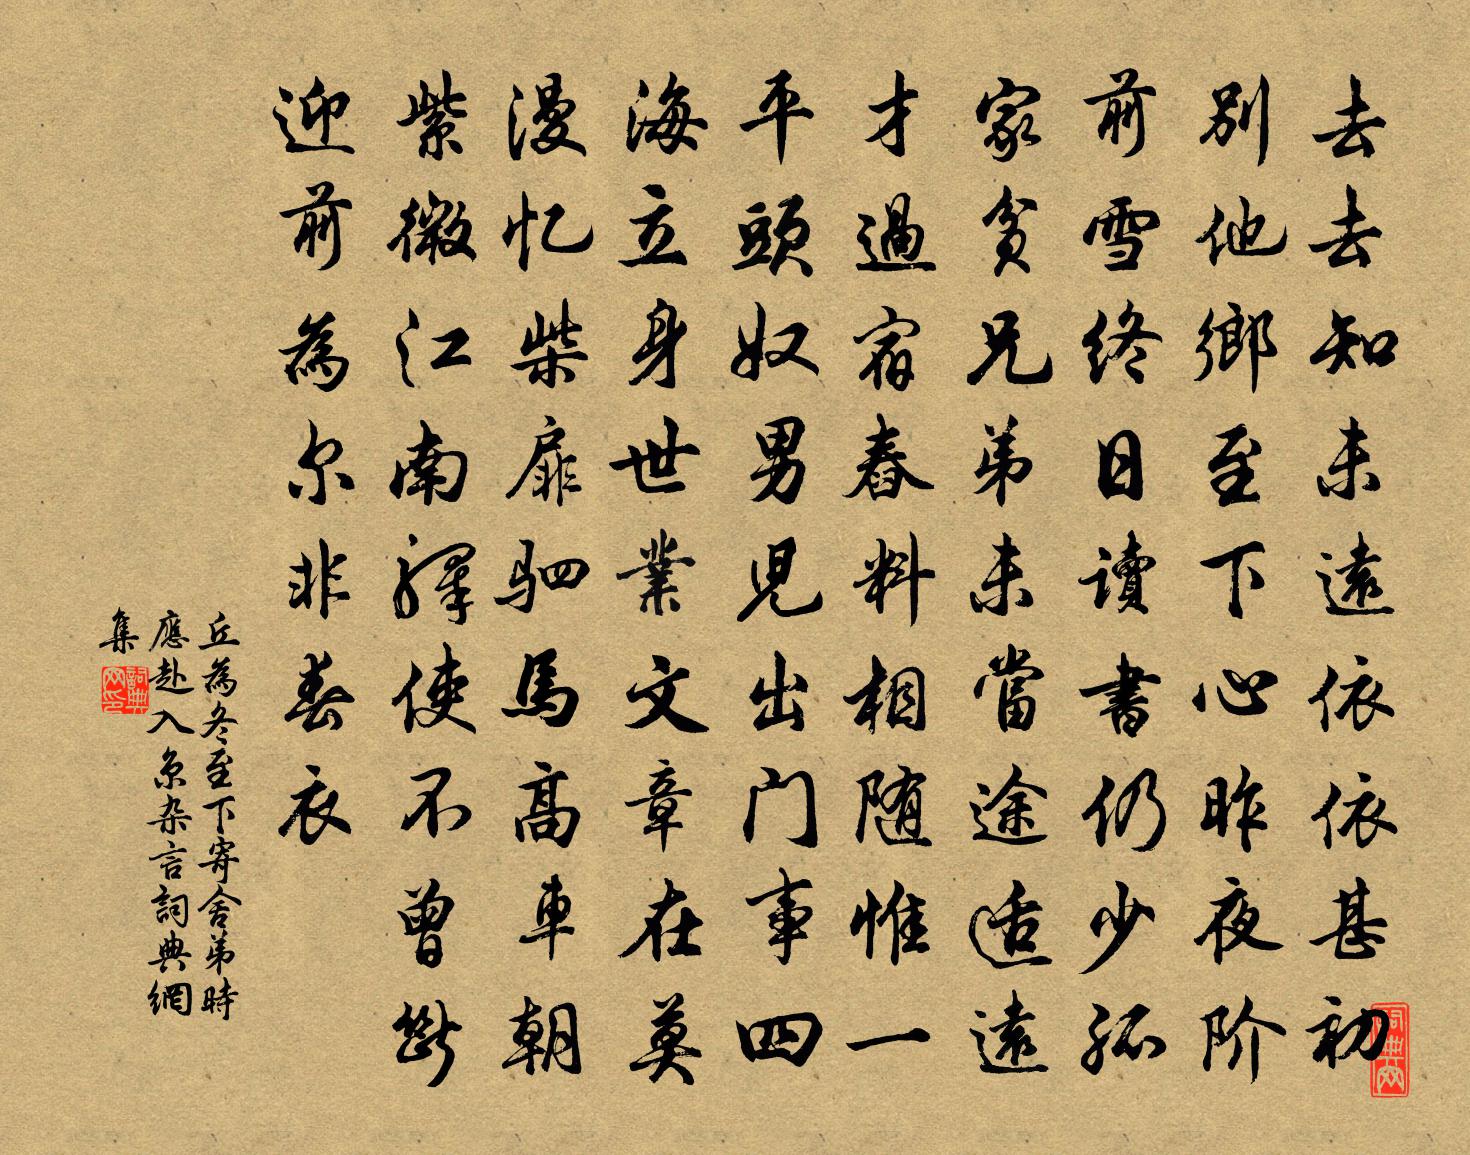 去去知未遠依依甚初
別他鄉至下心昨夜阶
前雪終日讀書仍少孤
家貧兄弟未當途适遠
才過宿舂料相随惟一
平頭奴男兒出门事四
海立身世業文章在莫
漫忆柴扉驷馬高車朝
紫微江南驛使不曾斷
迎前為尔非春衣
丘為冬至下寄舍弟時
應赴入京杂言詞典網
集
詞典网印
词典网